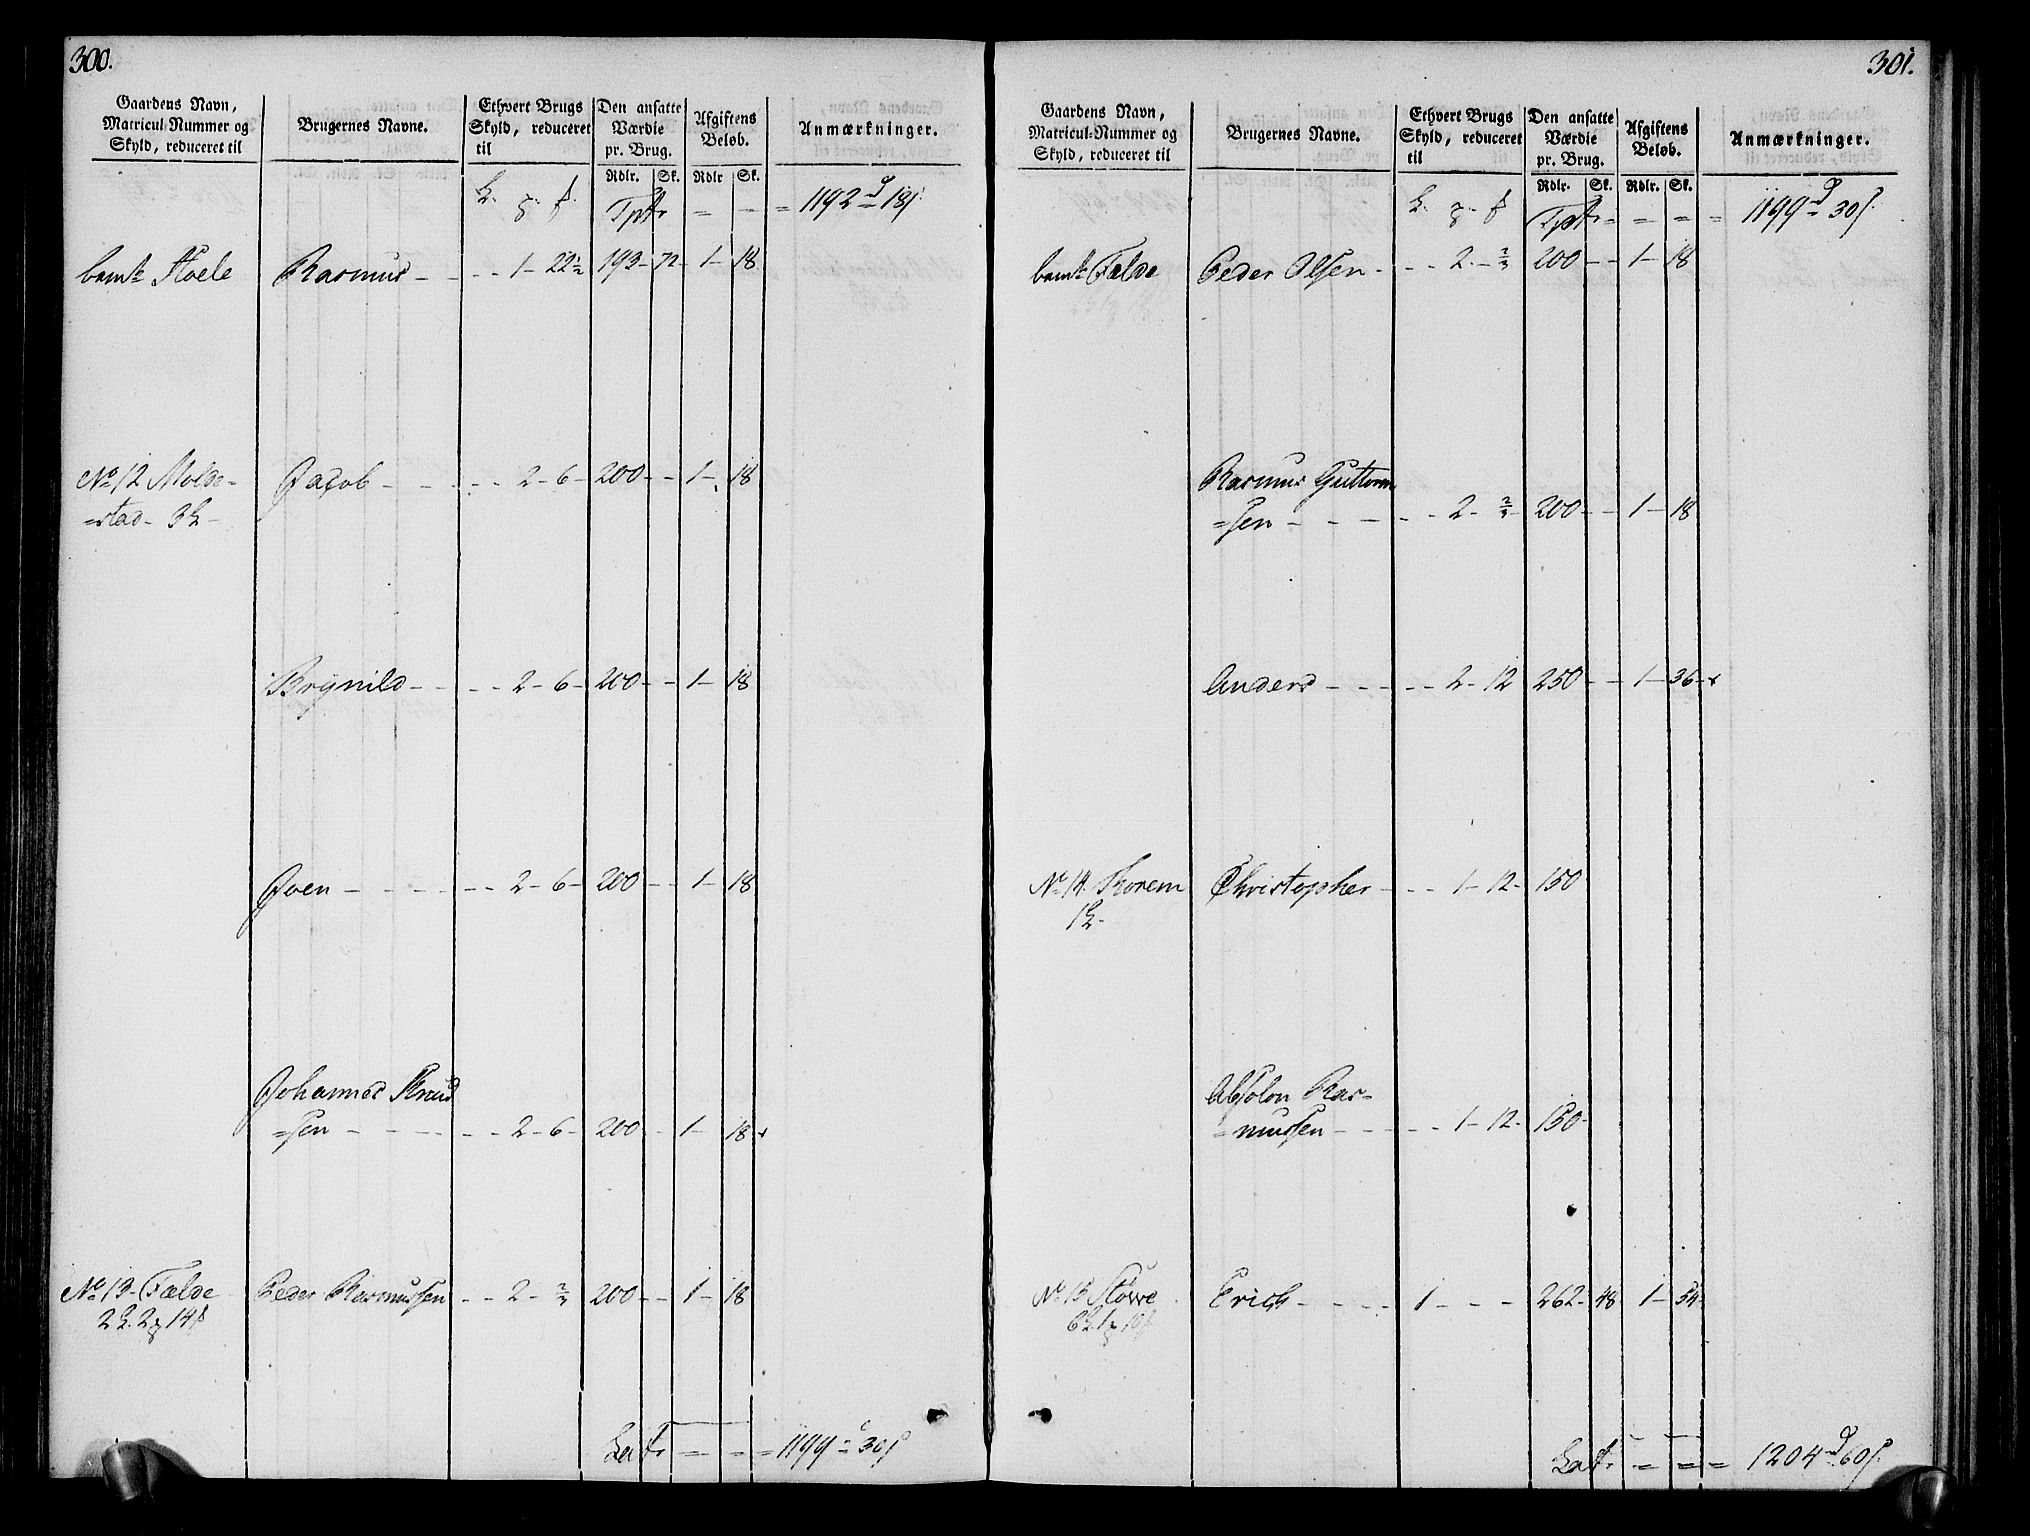 300.
Gaardens Navn, Matricul-Nummer og Skyld, reduceret til
Brugernes Navne.
Ethvert Brugs Skyld, reduceret til
Den ansatte Værdie pr. Brug.
Afgiftens Beløb.
Anmærkninger.
Rdlr. Sk. Rdlr Sk.
Tptr = - = 1192 18
Rasmus - - - 1 - 22½ 193 - 72 - 1 - 18
No 12 Molde- Jacob - - - - 2 - 6 - 200 - - 1 - 18
=stad - 3
Brynild - - - - 2 - 6 - 200 - - 1 - 18
Joen - - - - - 2 - 6 - 200 - - 1 - 18
Johannes Knud
=sen - - - - - 2 - 6 - 200 - - 1 - 18
No 13 - Fælde Peder Rasmussen - - 2 - ⅔ 200 - - 1 - 18
2 2 14
Latr = - = 1199 30
301.
Gaardens Navn, Matricul-Nummer og Skyld, reduceret til
Brugernes Navne.
Ethvert Brugs Skyld, reduceret til
Den ansatte Værdie pr. Brug.
Afgiftens Beløb.
Anmærkninger.
Rdlr. Sk. Rdlr. Sk.
Tptr = = = = 1199 30
Fælde Peder Olsen - - - 2 - ⅔ 200 - - 1 - 18
Rasmus Guttorm
=sen - - - - - 2 - ⅔ 200 - - 1 - 18
Anders - - - - - 2 - 12 250 - - 1 - 36
No 14. Korem Christopher - - - 1 - 12 - 150
1
Absolon Ras-
=mussen - - - - - 1 - 12 - 150
No 15 Støwe Erich - - - - 1 - - - 262 - 48 1 - 54
6 1 10
Latr = = = 1204 60